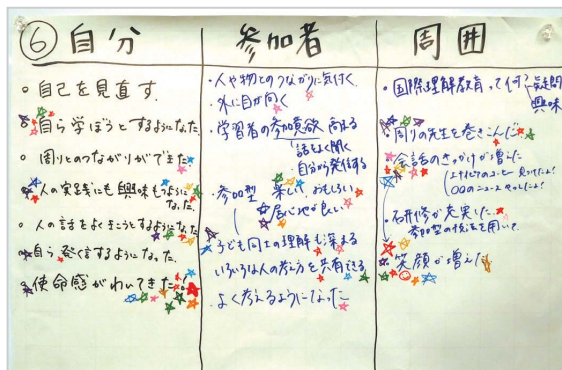 ⑥自分
○自己を見直す.
○自ら学ぼうとするようになった.
○周りとのつながりができた
○人の実践にも興味もつように
なった.
○人の話をよくきこうとするようになった.
○自ら発信するようになった.
○使命感がわいてきた!
参加者
・人や物とのつながりに気付く.
・外に目が向く
・学習者の参加意欲 高まる
話をよく聞く
自分から発信する
・参加型 楽しい、おもしろい
居心地が良い
・子ども同士の理解も深まる
・いろいろな人の考え方を共有できる
・よく考えるようになった
周囲
・国際理解教育って何?疑問
興味
・周りの先生を巻きこんだ.
・会話のきっかけが増えた
○○のニュース
・研修が充実した.
参加型の技法を用いて.
・笑顔が増えた